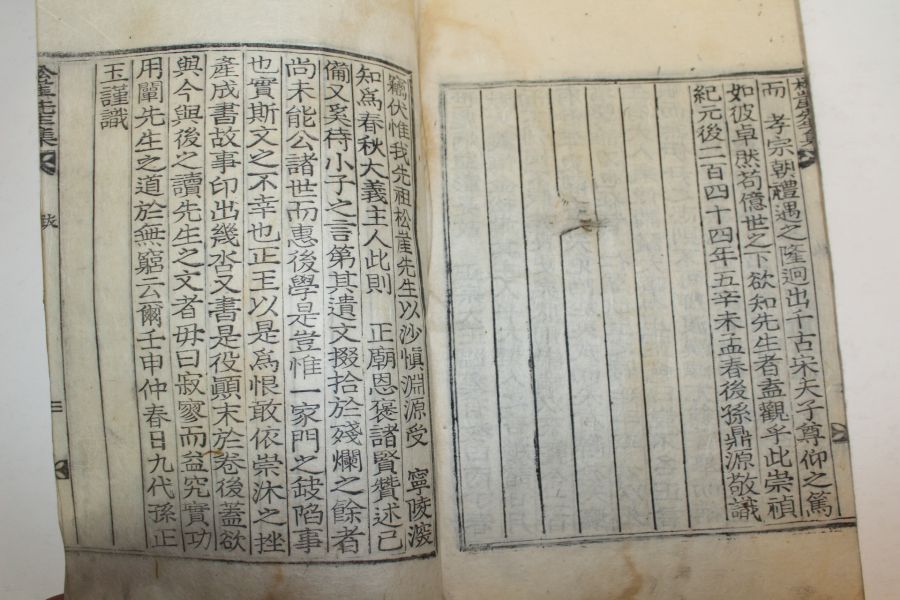 而 孝宗朝禮遇之隆迥出千古宋夫子尊仰之篤
如彼卓然苟億世之下欲知先生者盍觀乎此崇禎
紀元後二百四十四年五辛未孟春後孫鼎源敬識
竊伏惟我先祖松崖先生以沙愼淵源受 寧陵深
知爲春秋大義主人此則 正廟恩褒諸賢贊述已
備又奚待小子之言第其遺文掇拾於殘爛之餘者
尚未能公諸世而惠後學是豈惟一家門之缺陷事
也實斯文之不幸也正玉以是爲恨敢依崇沐之挫
產成書故事印出幾帙又書是役顚末於卷後蓋欲
與今與後之讀先生之文者毋曰寂寥而益究實功
用闡先生之道於無窮云爾壬申仲春日九代孫正
玉謹識
松崖先生集
跋
二